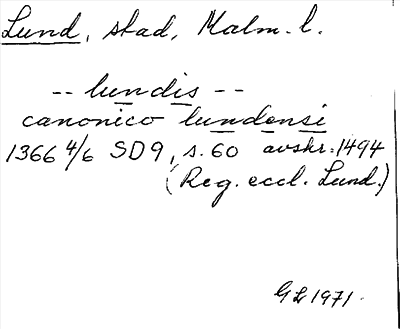 Lund, stad, Malm. l.
-- lundis --
canonico lundensi
1366 4/6 SD9, s. 60 avskr. 1494
(Reg. eccl. Lund.)
GL 1971.